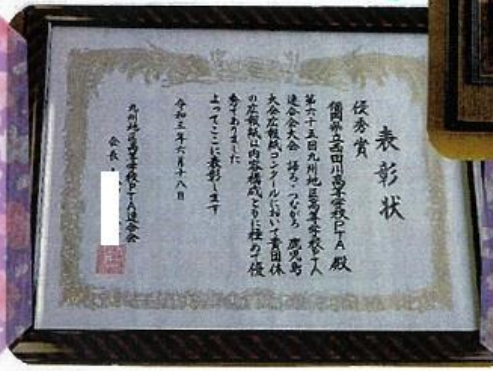 表彰状
優秀賞
福岡県立西田川高等学校PTA 殿
第六十五回九州地区高等学校PTA
連合会大会 語ろう・つながろう 鹿児島
大会広報紙コンクールにおいて貴団体
の広報紙は内容構成ともに極めて優
秀でありました
よってここに表彰します
令和三年六月十八日
九州地区高等学校PTA連合会
会長